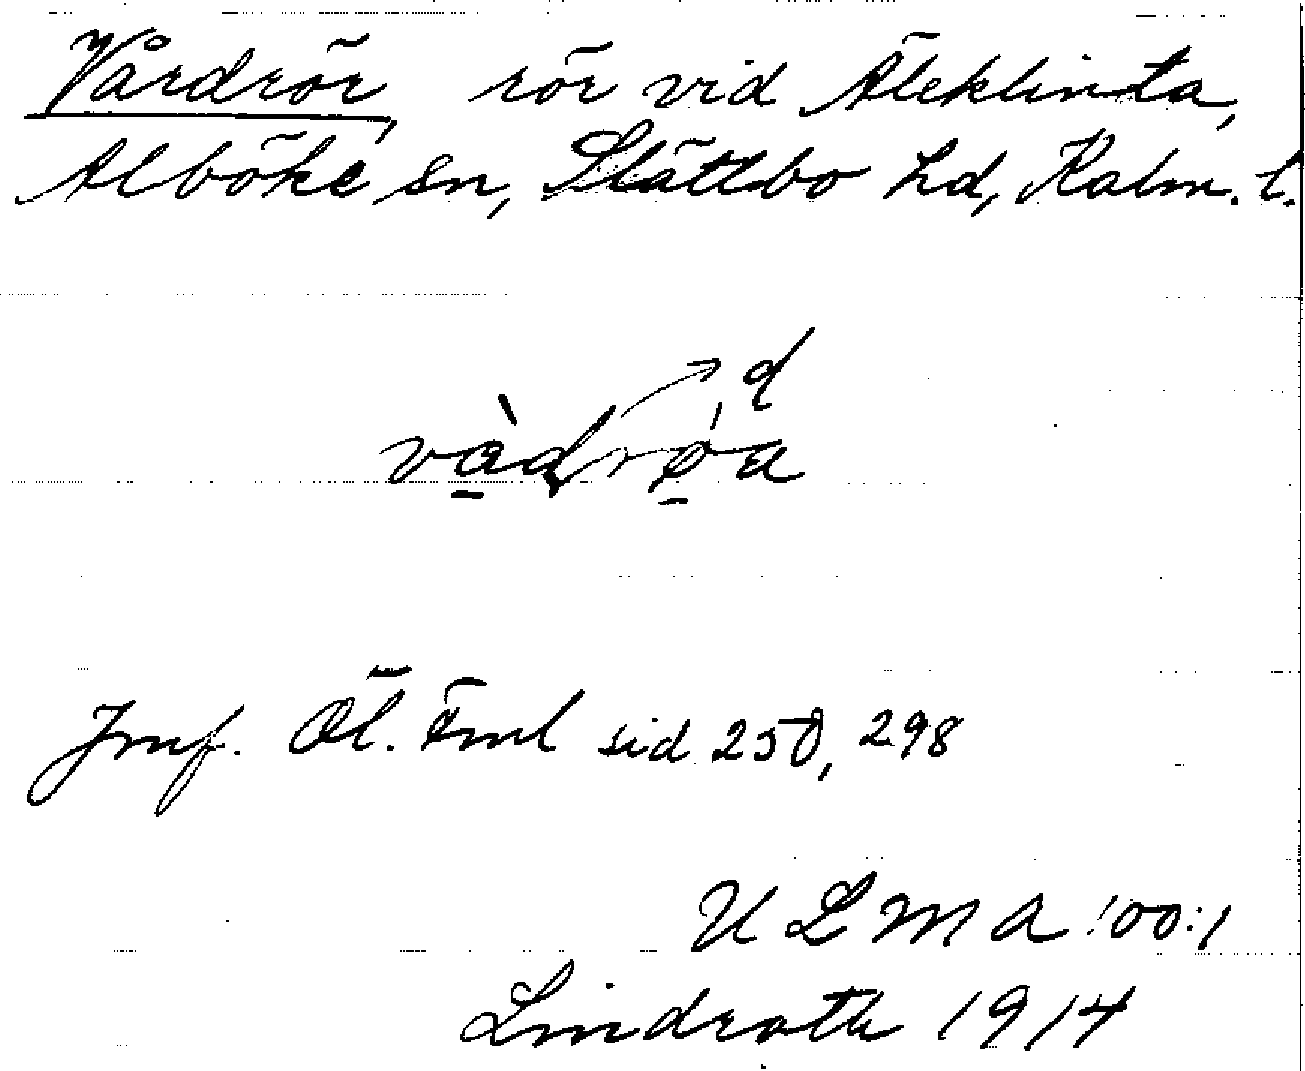 Vårdrör, rör vid Äleklinta,
Alböke sn, Slättbo hd, Kalm. l.
Jmf. Öl. Fml sid 250, 298
ULMA 100:1
Lindroth 1914